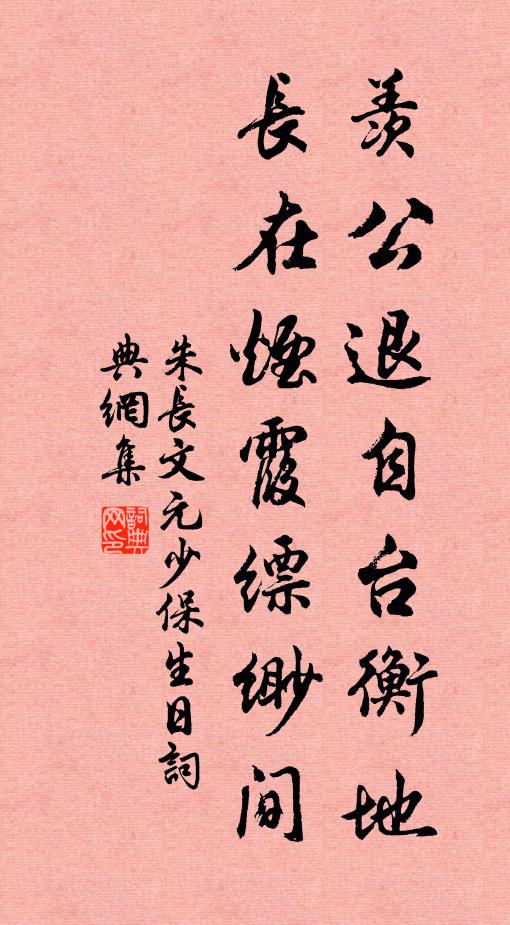 羨公退自台衡地
長在煙霞縹緲間
朱長文元少保生日詞
典網集
詞典
网印